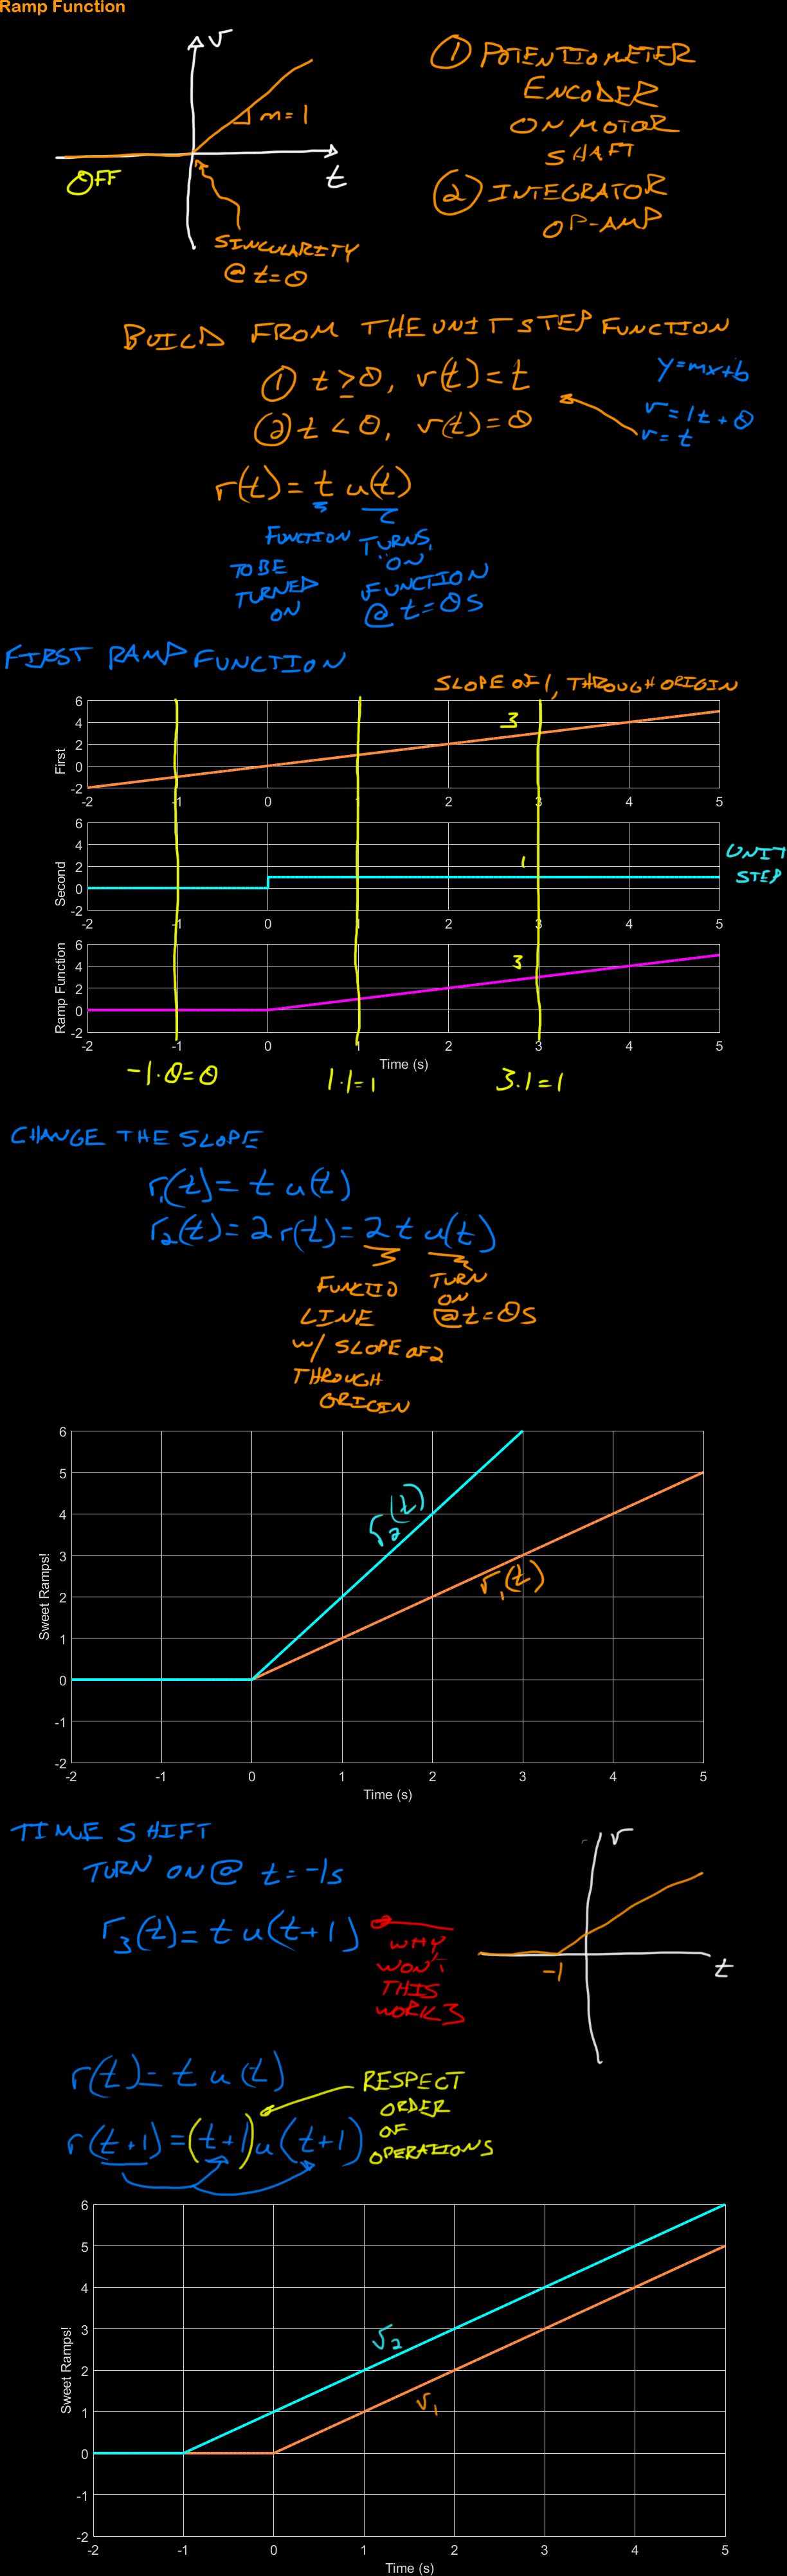 Ramp Function
r
m=1
t
OFF
SINGULARITY
@ t=0
① POTENTIOMETER
ENCODER
ON MOTOR
SHAFT
② INTEGRATOR
OP-AMP
BUILD FROM THE UNIT STEP FUNCTION
① t≥0, r(t)=t
② t<0, r(t)=0
y=mx+b
r=1t+0
r=t
r(t)= t u(t)
FUNCTION
TO BE
TURNED
ON
TURNS
"ON
FUNCTION
@ t=0s
FIRST RAMP FUNCTION
SLOPE OF 1, THROUGH ORIGIN
First
6
4
2
0
-2
3
-2 -1 0 1 2 3 4 5
Second
6
4
2
0
-2
1
UNIT
STEP
-2 -1 0 1 2 3 4 5
Ramp Function
6
4
2
0
-2
3
-2 -1 0 1 2 3 4 5
Time (s)
-1·0=0
1·1=1
3·1=1
CHANGE THE SLOPE
r₁(t)= t u(t)
r₂(t)=2 r(t)= 2 t u(t)
FUNCTIO
LINE
w/ SLOPE OF 2
THROUGH
ORIGIN
TURN
ON
@t=0s
Sweet Ramps!
6
5
4
3
2
1
0
-1
-2
r₂(t)
r₁(t)
-2 -1 0 1 2 3 4 5
Time (s)
TIME SHIFT
TURN ON @ t=-1s
r₃(t)= t u(t+1)
WHY
WON'T
THIS
WORK?
r
-1
t
r(t)= t u(t)
r(t+1)=(t+1)u(t+1)
RESPECT
ORDER
OF
OPERATIONS
Sweet Ramps!
6
5
4
3
2
1
0
-1
-2
r₂
r₁
-2 -1 0 1 2 3 4 5
Time (s)